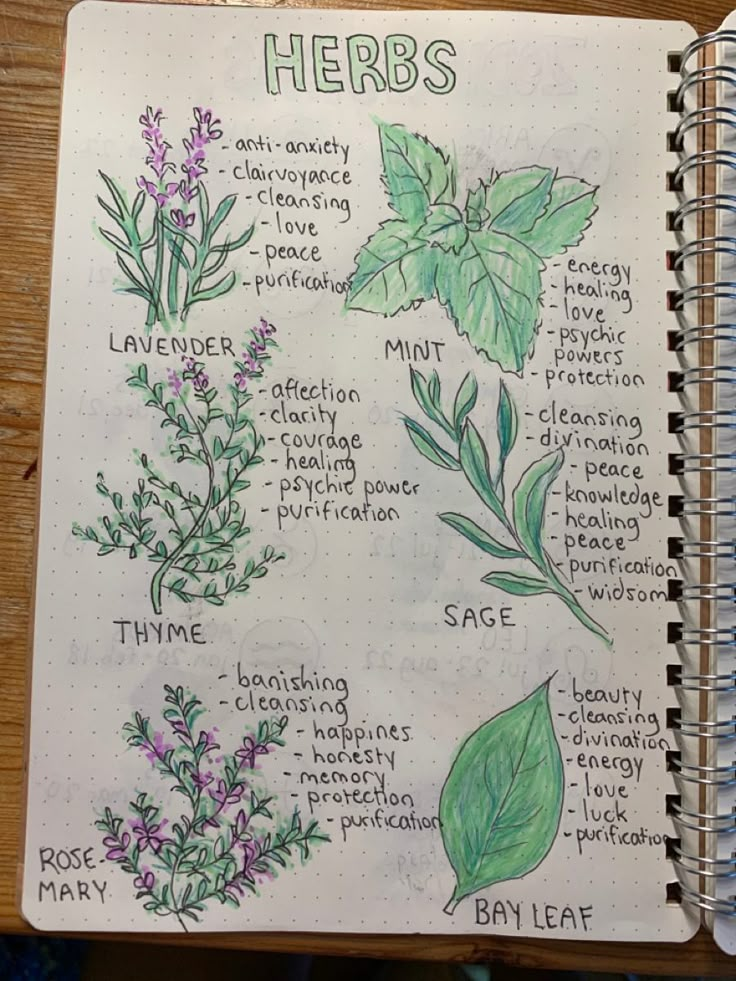 HERBS
- anti-anxiety
- clairvoyance
- cleansing
- love
- peace
- purification
LAVENDER
- energy
- healing
- love
- psychic
powers
- protection
MINT
- affection
- clarity
- courage
- healing
- psychic power
- purification
THYME
- cleansing
- divination
- peace
- knowledge
- healing
- peace
- purification
- widsom
SAGE
- banishing
- cleansing
- happines
- honesty
- memory
- protection
- purification
ROSE-
MARY
- beauty
- cleansing
- divination
- energy
- love
- luck
- purification
BAY LEAF